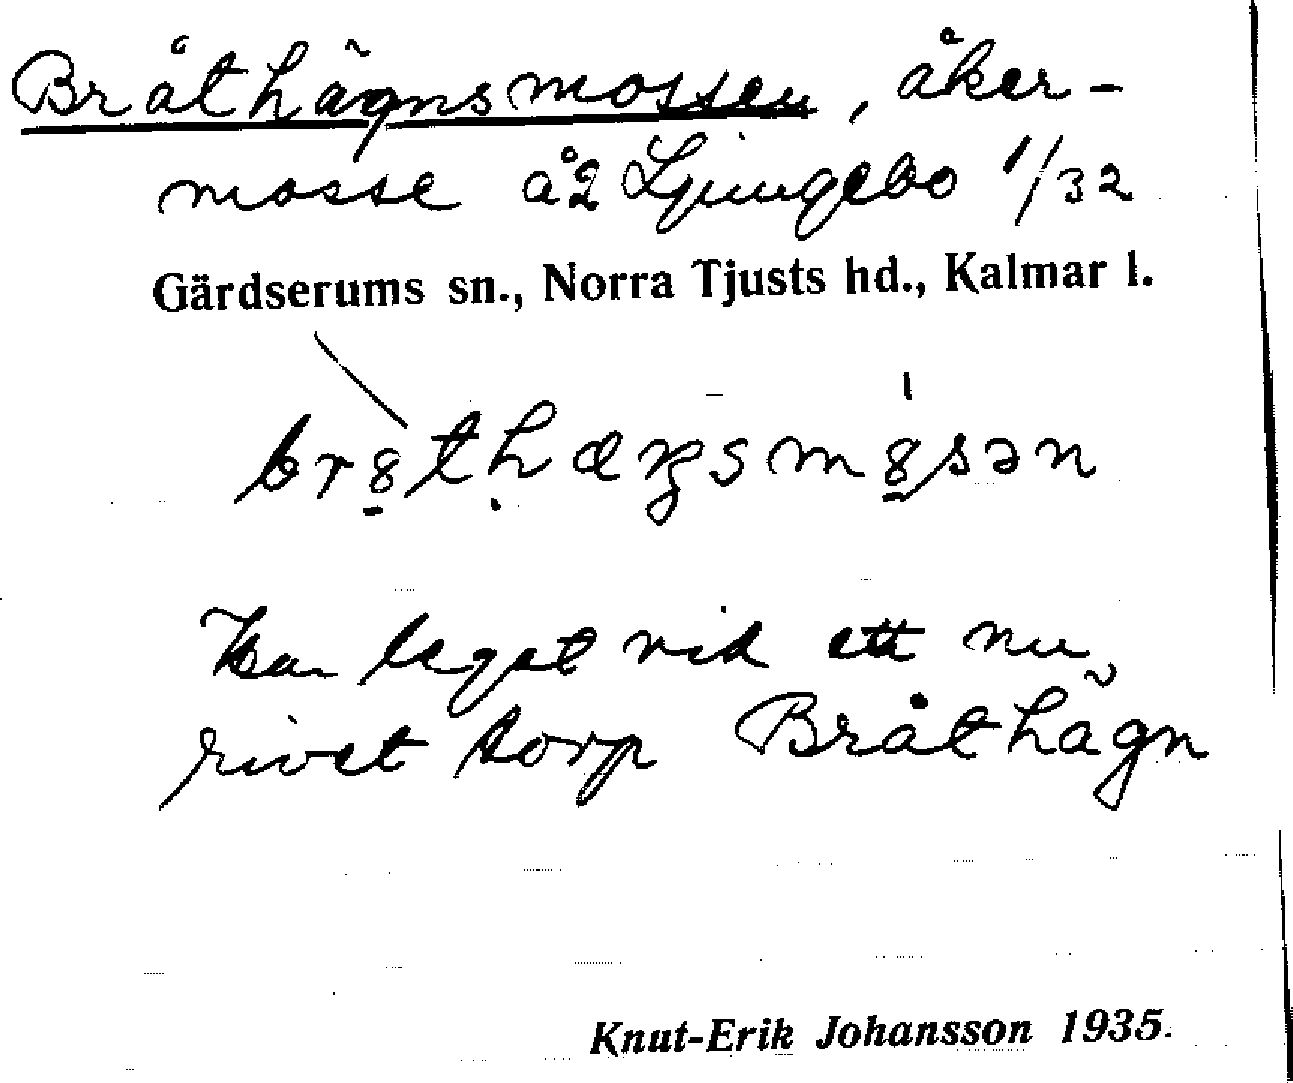 Bråthägnsmossen, åker-
mosse å2 Ljungebo 1/32
Gärdserums sn., Norra Tjusts hd., Kalmar l.
Har legat vid ett nu
rivet torp Bråthägn
Knut-Erik Johansson 1935.